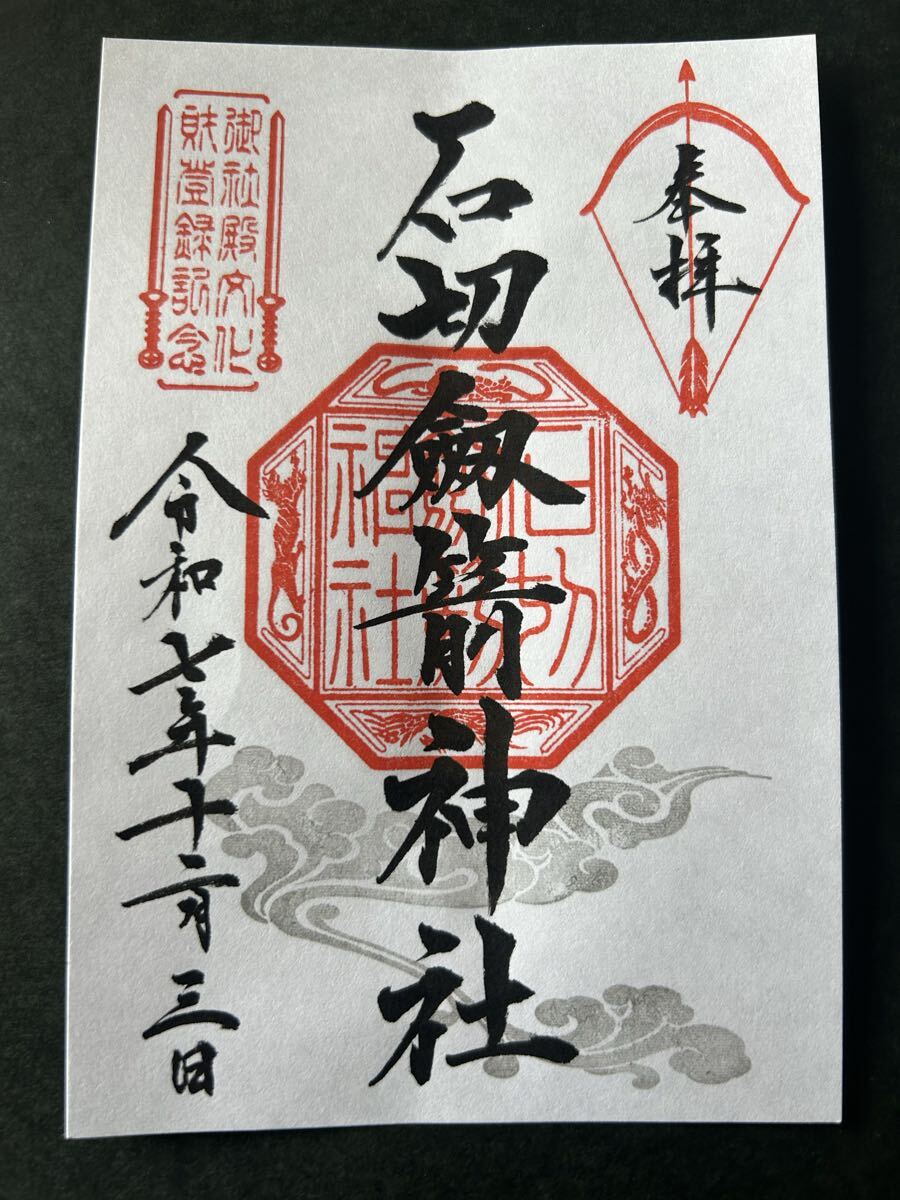 奉拝
石切劔箭神社
御社殿文化
財登録記念
令和七年十二月三日